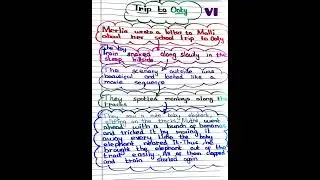 Trip to Ooty
VI
Merlia wrote a letter to Malli
about her school trip to Ooty
The toy
train snaked along slowly in the
steep hillside
The scenery outside was
beautiful and looked like a
movie sequence
They spotted monkeys along the
tracks
They saw a cute baby elephant
sitting on the tracks. Muthu went
ahead with a bunch of bananas
and tricked it by moving it
away every time the baby
elephant neared it. Thus he
brought the elephant out of the
track easily. All of them clapped
and train started again